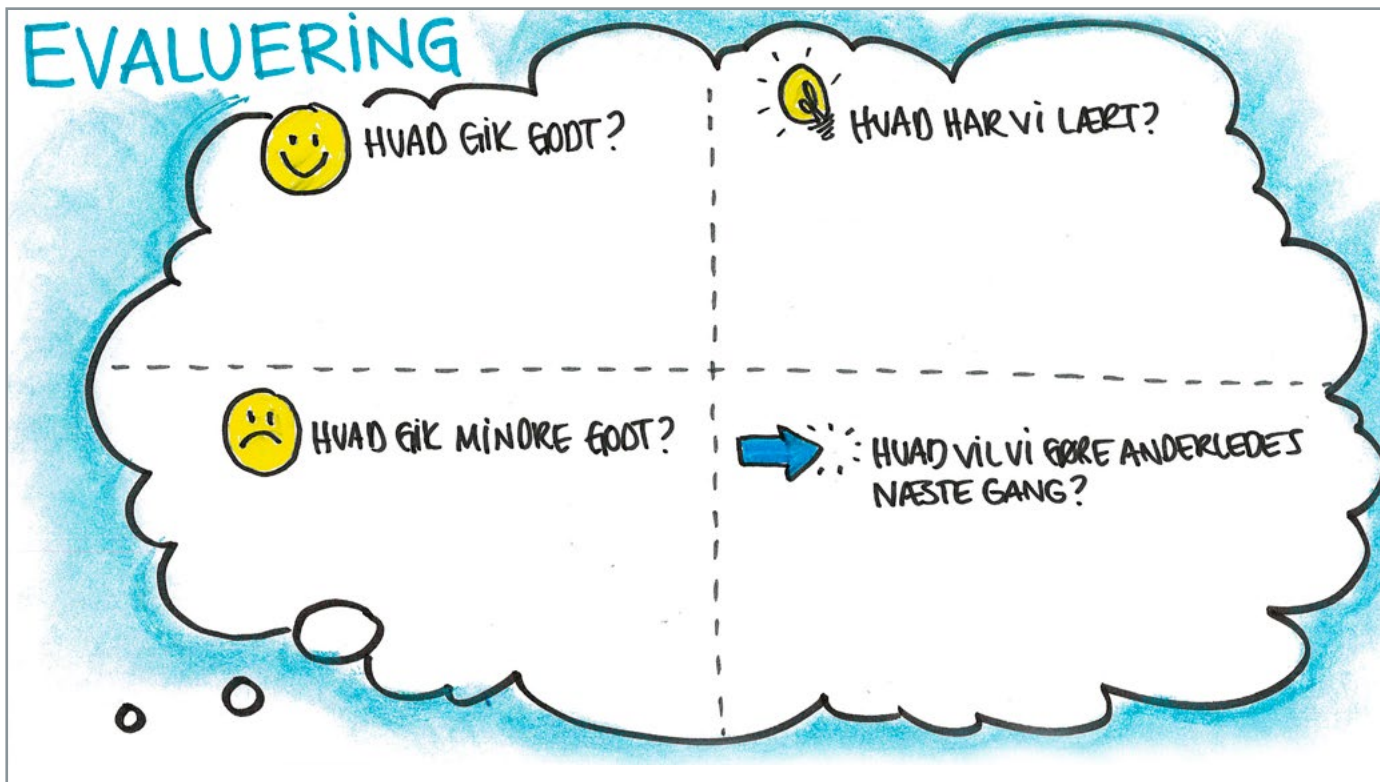 EVALUERING
HVAD GIK GODT?
HVAD HAR VI LÆRT?
HVAD GIK MINDRE GODT?
HVAD VIL VI GØRE ANDERLEDES
NÆSTE GANG?